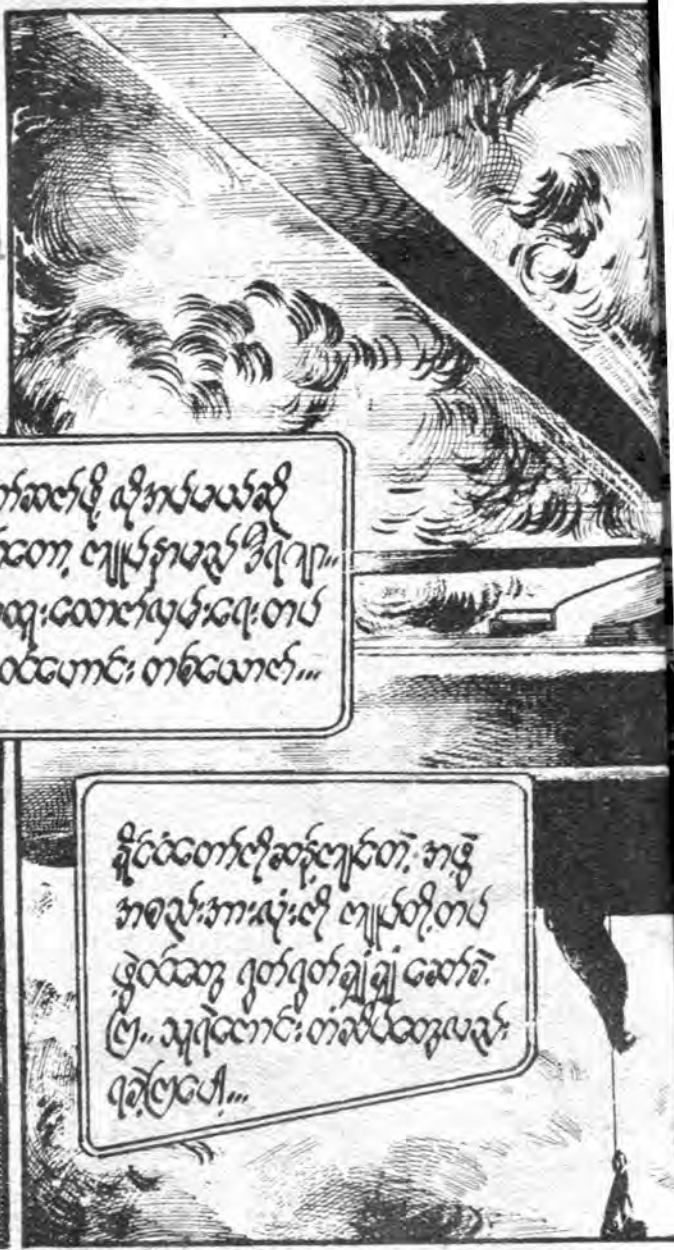 ဆက်ဖို့ လိုအပ်မယ်ဆို
တော့ ကျုပ်နာမည် ဒီရဲရာ..
အထူးထောက်လှမ်းရေးတပ်
ဝင်ဟောင်း တစ်ယောက်...
နိုင်ငံတော်ကိုဆန့်ကျင်တဲ့ အဖွဲ့
အစည်းအားလုံးကို ကျုပ်တို့တပ်
ဖွဲ့ဝင်တွေ ရွတ်ရွတ်ချွံချွံ ဆော်ခဲ့
ကြ.. သူရဲကောင်း တံဆိပ်တွေလည်း
ရခဲ့ကြပေါ့...